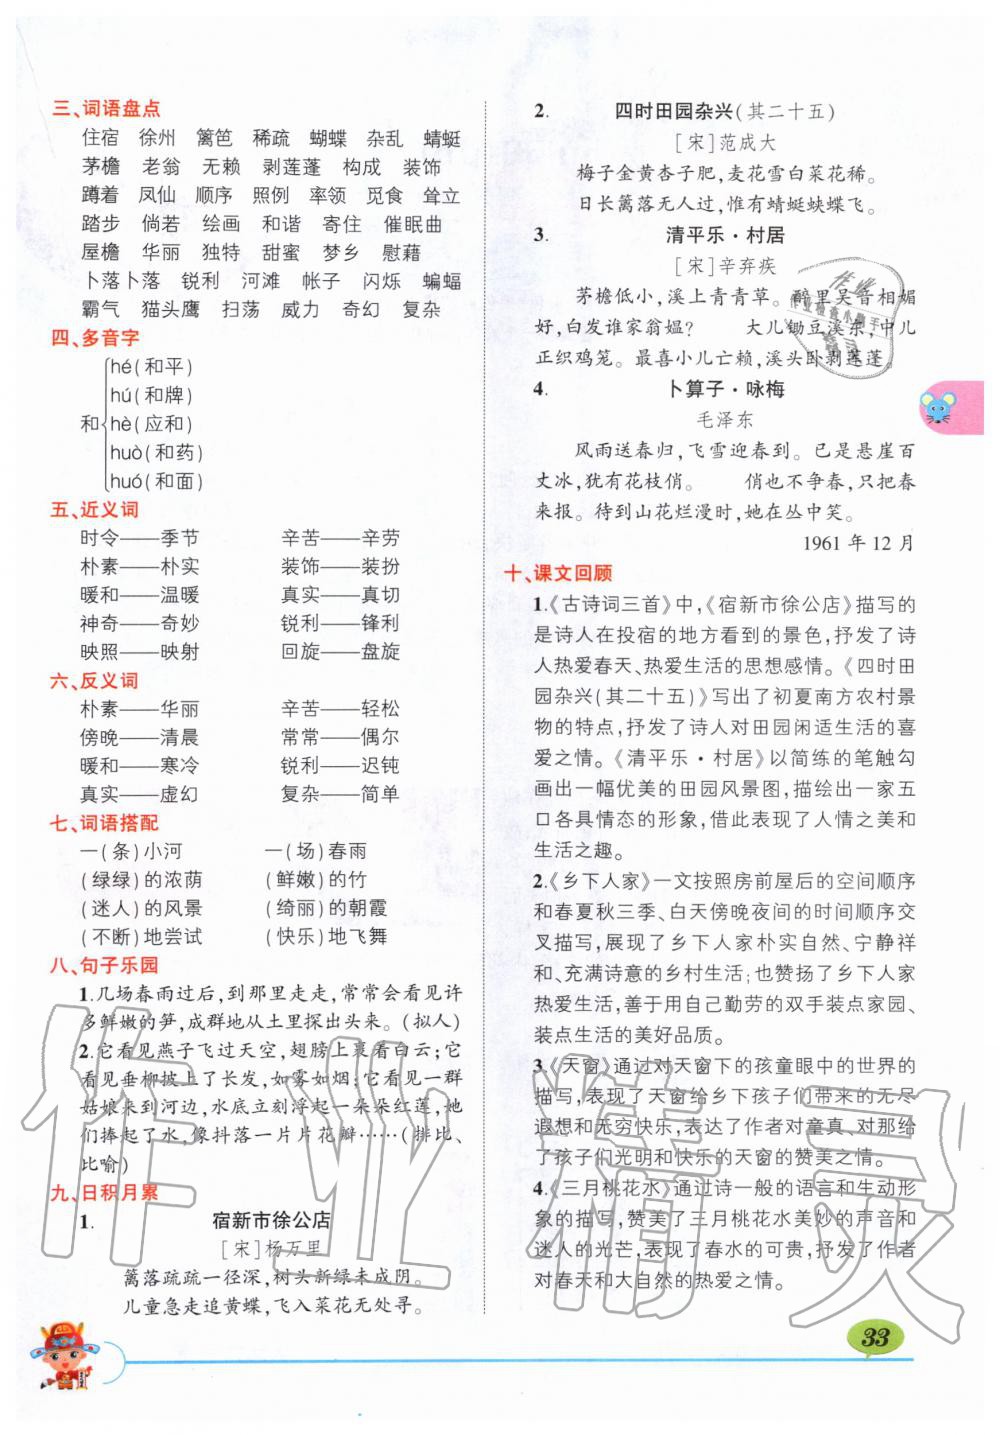 三、词语盘点
住宿 徐州 篱笆 稀疏 蝴蝶 杂乱 蜻蜓
茅檐 老翁 无赖 剥莲蓬 构成 装饰
蹲着 凤仙 顺序 照例 率领 觅食 耸立
踏步 倘若 绘画 和谐 寄住 催眠曲
屋檐 华丽 独特 甜蜜 梦乡 慰藉
卜落卜落 锐利 河滩 帐子 闪烁 蝙蝠
霸气 猫头鹰 扫荡 威力 奇幻 复杂
四、多音字
hé(和平)
hú(和牌)
和 hè(应和)
huò(和药)
huó(和面)
五、近义词
时令——季节 辛苦——辛劳
朴素——朴实 装饰——装扮
暖和——温暖 真实——真切
神奇——奇妙 锐利——锋利
映照——映射 回旋——盘旋
六、反义词
朴素——华丽 辛苦——轻松
傍晚——清晨 常常——偶尔
暖和——寒冷 锐利——迟钝
真实——虚幻 复杂——简单
七、词语搭配
一(条)小河 一(场)春雨
(绿绿)的浓荫 (鲜嫩)的竹
(迷人)的风景 (绮丽)的朝霞
(不断)地尝试 (快乐)地飞舞
八、句子乐园
1.几场春雨过后,到那里走走,常常会看见许
多鲜嫩的笋,成群地从土里探出头来。(拟人)
2.它看见燕子飞过天空,翅膀上裹着白云;它
看见垂柳披上了长发,如雾如烟;它看见一群
姑娘来到河边,水底立刻浮起一朵朵红莲,她
们捧起了水,像抖落一片片花瓣……(排比、
比喻)
九、日积月累
1. 宿新市徐公店
[宋]杨万里
篱落疏疏一径深,树头新绿未成阴。
儿童急走追黄蝶,飞入菜花无处寻。
2. 四时田园杂兴(其二十五)
[宋]范成大
梅子金黄杏子肥,麦花雪白菜花稀。
日长篱落无人过,惟有蜻蜓蛱蝶飞。
3. 清平乐·村居
[宋]辛弃疾
茅檐低小,溪上青青草。醉里吴音相媚
好,白发谁家翁媪? 大儿锄豆溪东,中儿
正织鸡笼。最喜小儿亡赖,溪头卧剥莲蓬。
4. 卜算子·咏梅
毛泽东
风雨送春归,飞雪迎春到。已是悬崖百
丈冰,犹有花枝俏。 俏也不争春,只把春
来报。待到山花烂漫时,她在丛中笑。
1961年12月
十、课文回顾
1.《古诗词三首》中,《宿新市徐公店》描写的
是诗人在投宿的地方看到的景色,抒发了诗
人热爱春天、热爱生活的思想感情。《四时田
园杂兴(其二十五)》写出了初夏南方农村景
物的特点,抒发了诗人对田园闲适生活的喜
爱之情。《清平乐·村居》以简练的笔触勾
画出一幅优美的田园风景图,描绘出一家五
口各具情态的形象,借此表现了人情之美和
生活之趣。
2.《乡下人家》一文按照房前屋后的空间顺序
和春夏秋三季、白天傍晚夜间的时间顺序交
叉描写,展现了乡下人家朴实自然、宁静祥
和、充满诗意的乡村生活;也赞扬了乡下人家
热爱生活,善于用自己勤劳的双手装点家园、
装点生活的美好品质。
3.《天窗》通过对天窗下的孩童眼中的世界的
描写,表现了天窗给乡下孩子们带来的无尽
遐想和无穷快乐,表达了作者对童真、对那给
了孩子们光明和快乐的天窗的赞美之情。
4.《三月桃花水》通过诗一般的语言和生动形
象的描写,赞美了三月桃花水美妙的声音和
迷人的光芒,表现了春水的可贵,抒发了作者
对春天和大自然的热爱之情。
33
作业精灵